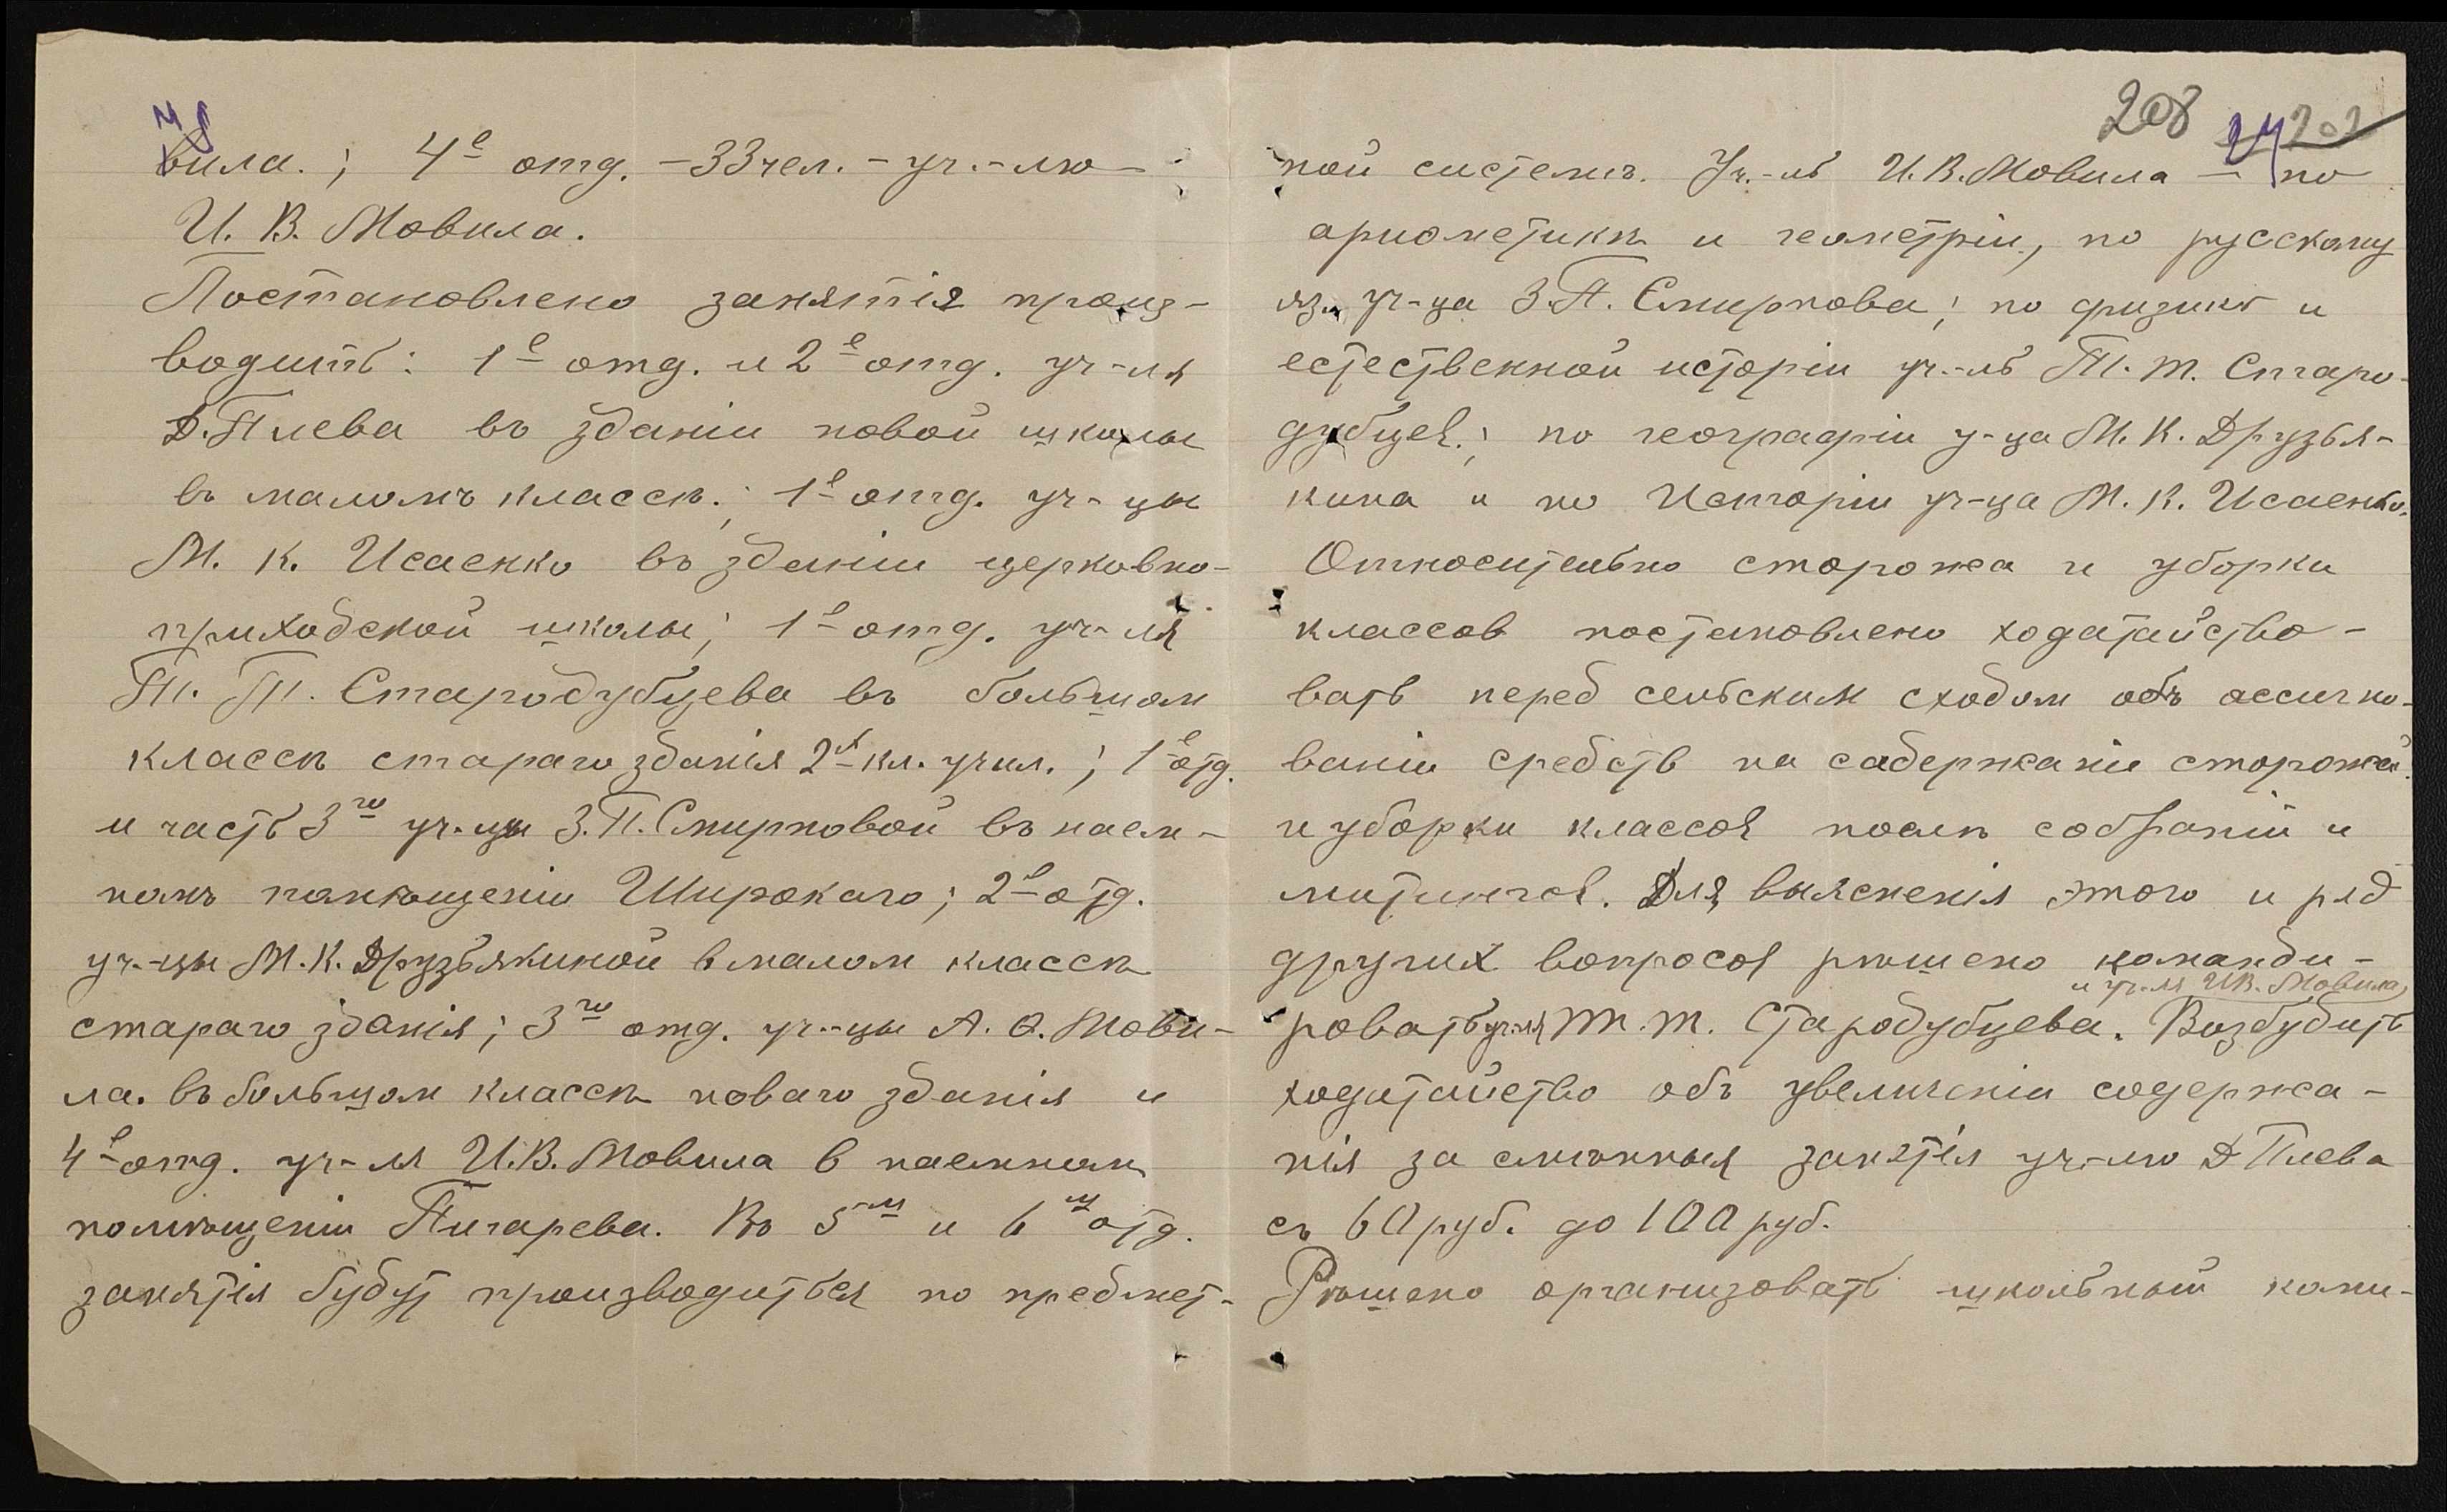 вила.; 4е отд. – 33 чел. – уч.-лю –
И. В. Мовила.
Постановлено занятія произ-
водить: 1е отд. и 2е отд. уч-ля
Д. Плева въ зданіи новой школы
въ маломъ классѣ.; 1е отд. уч-цы
М. К. Исаенко въ зданіи церковно-
приходской школы; 1е отд. уч-ля
Т. Т. Стародубцева въ большом
классѣ стараго зданія 2х кл. учил.; 1е отд.
и часть 3го уч-цы З. П. Смирновой въ наем-
номъ помѣщеніи Широкаго; 2е отд.
уч.-цы М. К. Друзьякиной в малом классѣ
стараго зданія; 3го отд. уч.-цы А. О. Мови-
ла. въ большом классѣ новаго зданія и
4е отд. уч-ля И. В. Мовила в наемном
помѣщеніи Пигарева. Въ 5м и 6м отд.
занятія будут производиться по предмет-
208 24 202
ной системѣ. Уч.-ль И. В. Мовила – по
ариѳметикѣ и геометріи, по русскому
яз. уч-ца З. П. Смирнова; по физикѣ и
естественной исторіи уч.-ль Т. Т. Старо-
дубцев.; по географіи у-ца М. К. Друзья-
кина и по Исторіи уч-ца М. К. Исаенко.
Относительно сторожа и уборки
классов постановлено ходатайство-
вать перед сельским сходом объ ассигно-
ваніи средств на содержаніе сторожей
и уборки классов послѣ собраній и
митингов. Для выясненія этого и ряд
других вопросов рѣшено команди-
и уч-ля И.В. Мовила
ровать уч-ля Т. Т. Стародубцева. Возбудить
ходатайство объ увеличеніи содержа-
нія за смѣнныя занятія уч-лю Д Плева
съ 60 руб. до 100 руб.
Рѣшено организовать школьный коми-